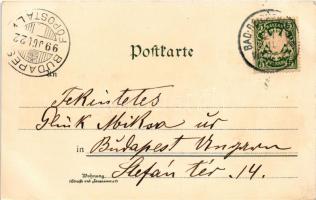 BUDAPEST
FŐPOSTA
99 JUL 22
BAD-
BAYERN
Postkarte
An
Tekintetes
Glück Miksa úr
in Budapest Ungarn
Wohnung
(Strasse und Hausnummer)
Stefán tér. 14.